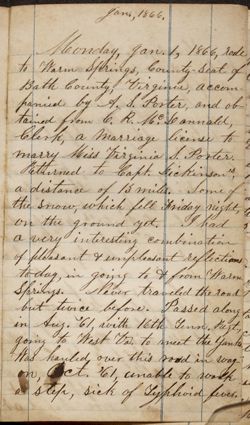 Jan. 1866.
Monday, Jan. 1, 1866, rode
to Warm Springs, County-Seat of
Bath County, Virginia, accom-
panied by A. S. Porter, and ob-
tained from C. R. McDannald,
Clerk, a marriage license to
marry Miss Virginia S. Porter.
Returned to Capt. Dickenson's,
a distance of 13 mile. Some of
the snow, which fell Friday night,
on the ground yet. I had
a very interesting combination
of pleasant & unpleasant reflections
to day, in going to & from Warm
Springs. Never traveled the road
but twice before. Passed along
in Aug. '61, with 16th Tenn. Regt.,
going to West Va. to meet the Yanks.
Was hauled over this road in wag-
on, Oct. '61, unable to walk
a step, sick of Typhoid fever.